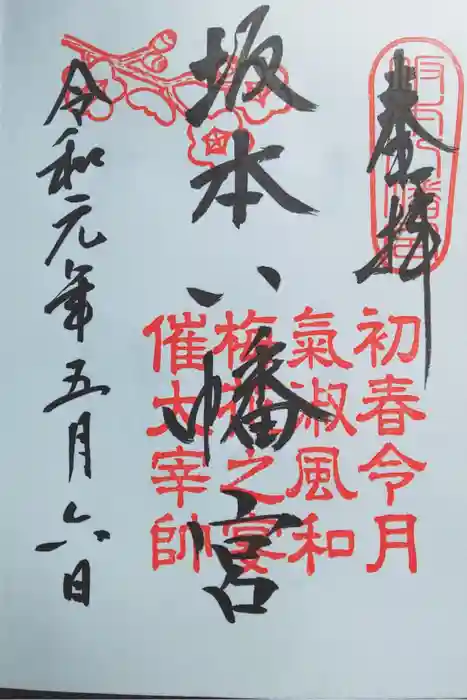 奉拝
坂本八幡宮
令和元年五月六日
初春令月
氣淑風和
梅花之宴
催太宰帥
坂本八幡宮